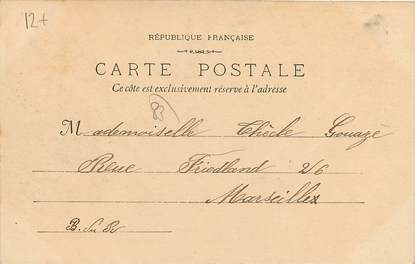 12+
RÉPUBLIQUE FRANÇAISE
CARTE POSTALE
Ce côté est exclusivement réservé à l'adresse
83
Mademoiselle Thècle Gouazé
Reue Friedland 26
Marseilles
B. du R